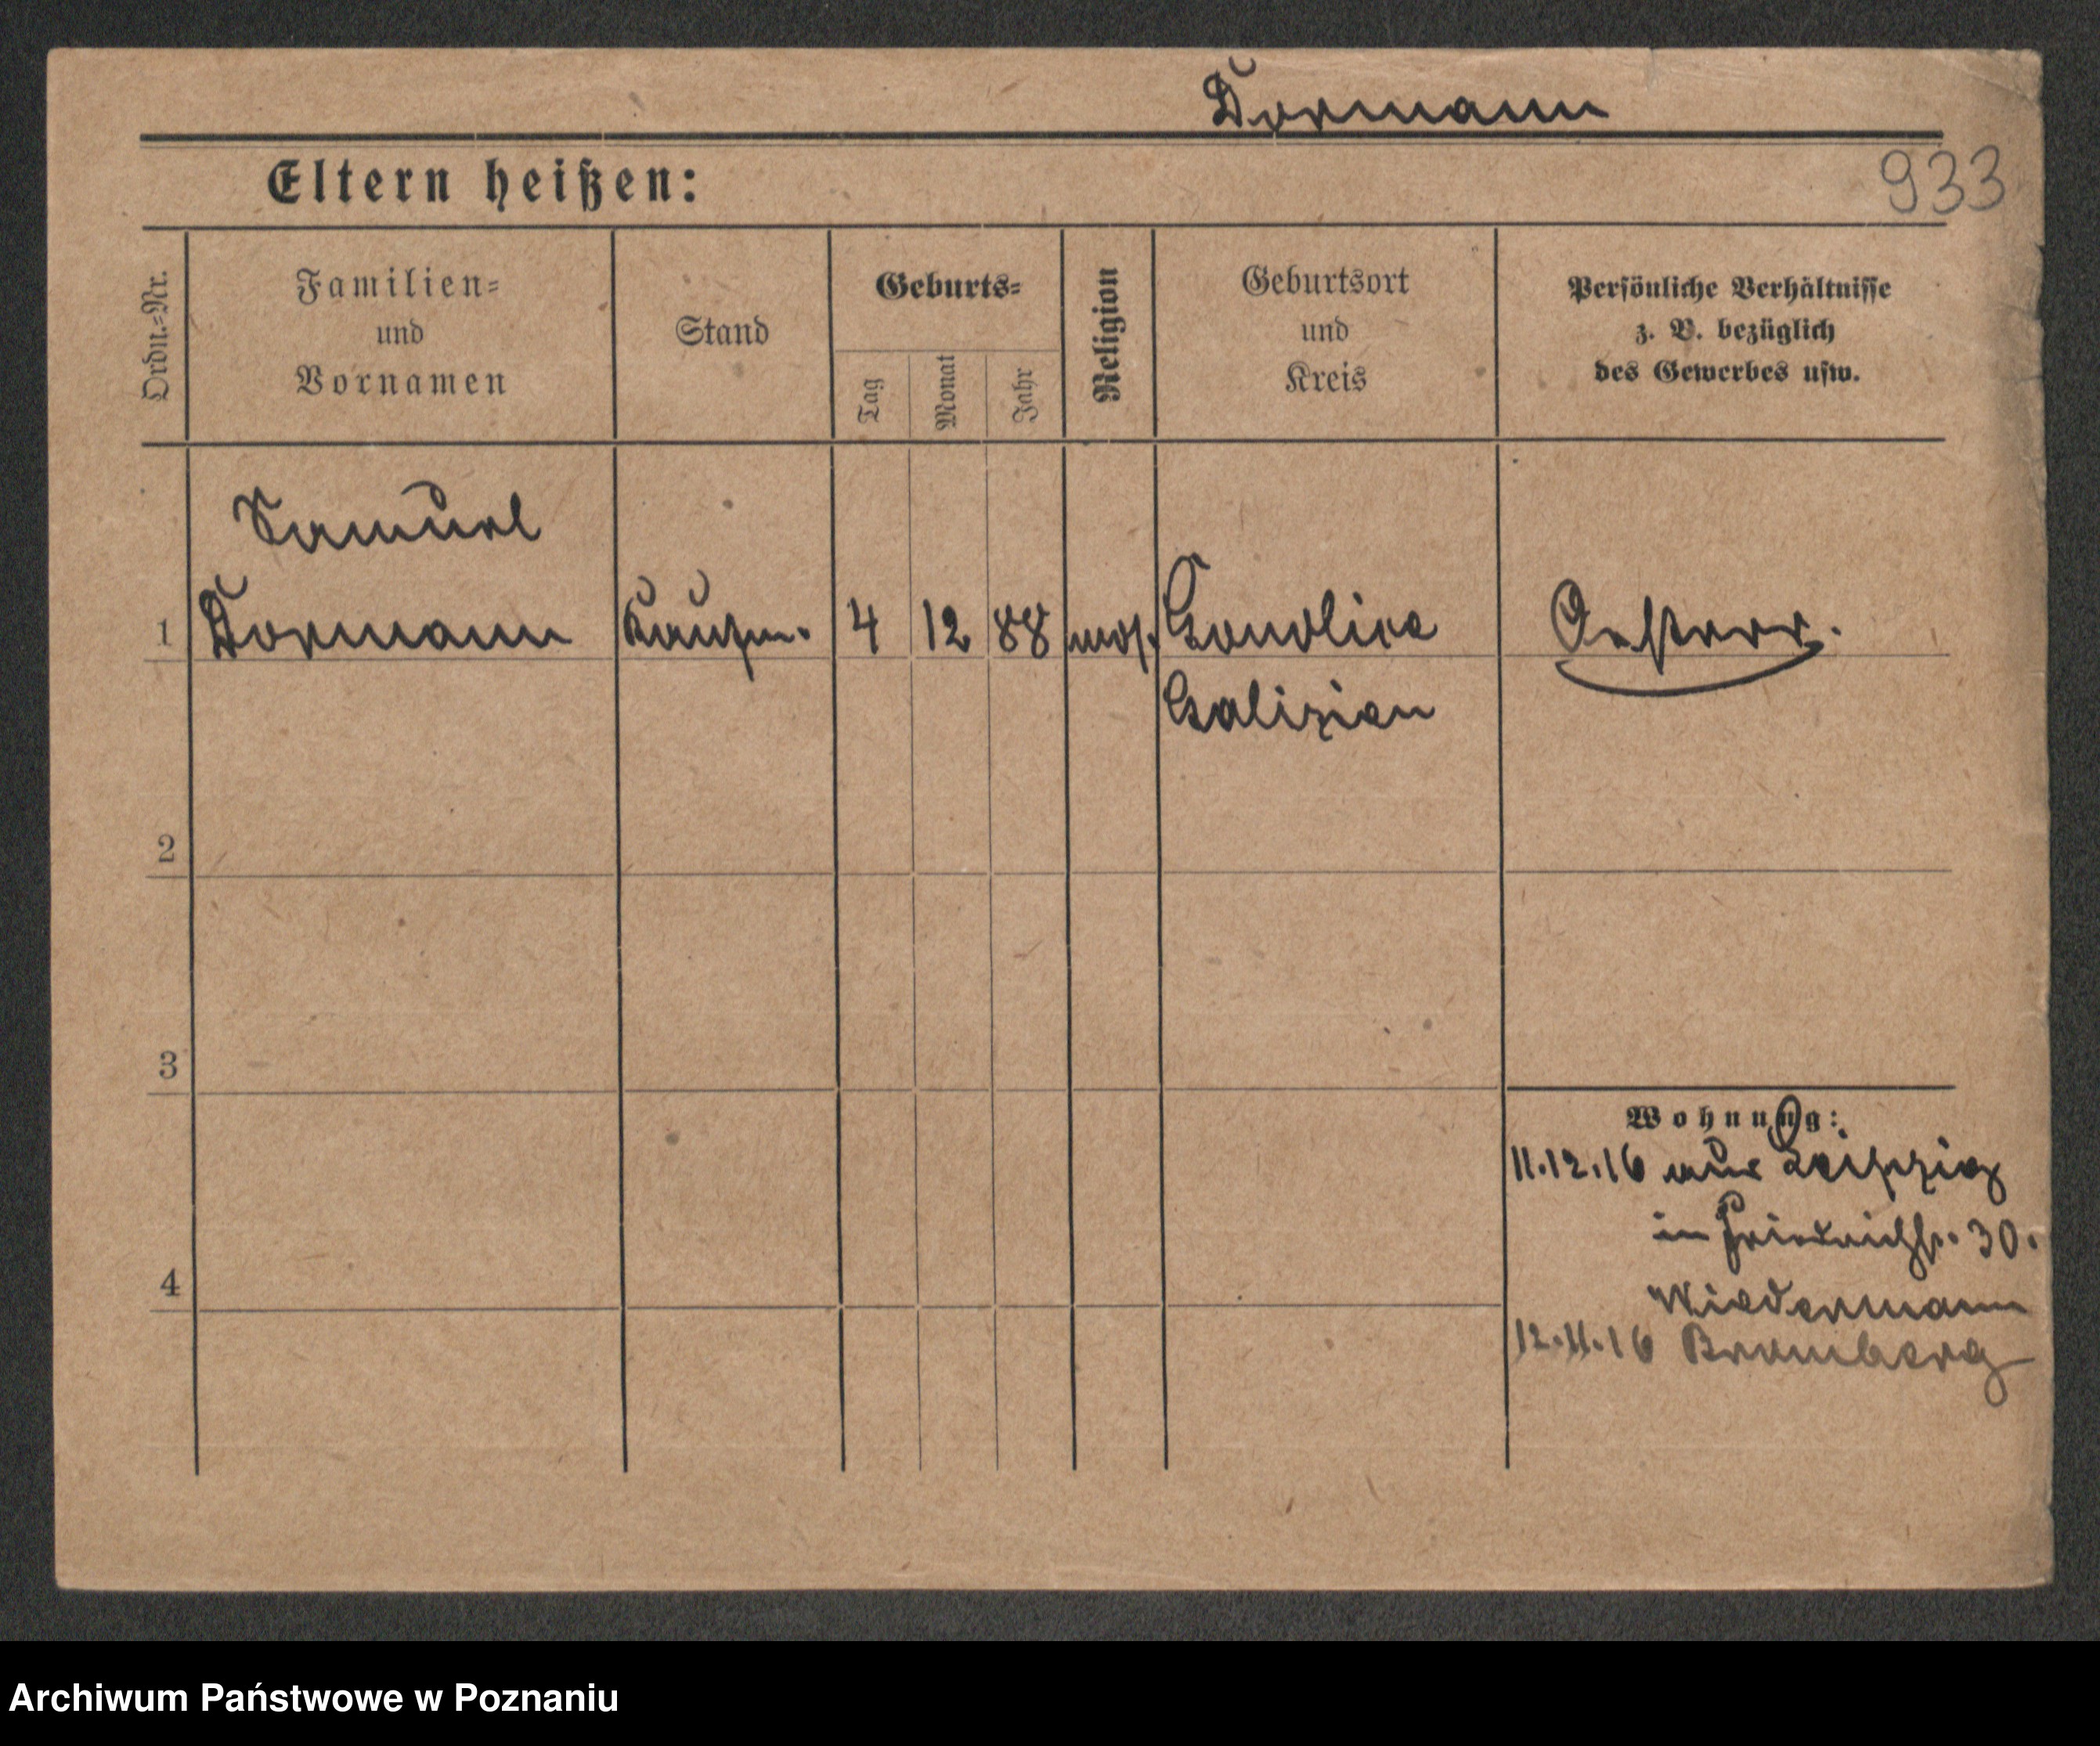 Dormann
Eltern heißen:
933
Ordn.-Nr.
Familien-
und
Vornamen
Stand
Geburts-
Tag
Monat
Jahr
Religion
Geburtsort
und
Kreis
Persönliche Verhältnisse
z. B. bezüglich
des Gewerbes usw.
Samuel
1 Dormann Kaufm. 4 12 88 mos. Oesterr.
Galizien
2
3
4
Wohnung:
11.12.16 aus Leipzig
in Friedrichstr. 30.
Wiedermann
12.11.16 Bromberg
Archiwum Państwowe w Poznaniu